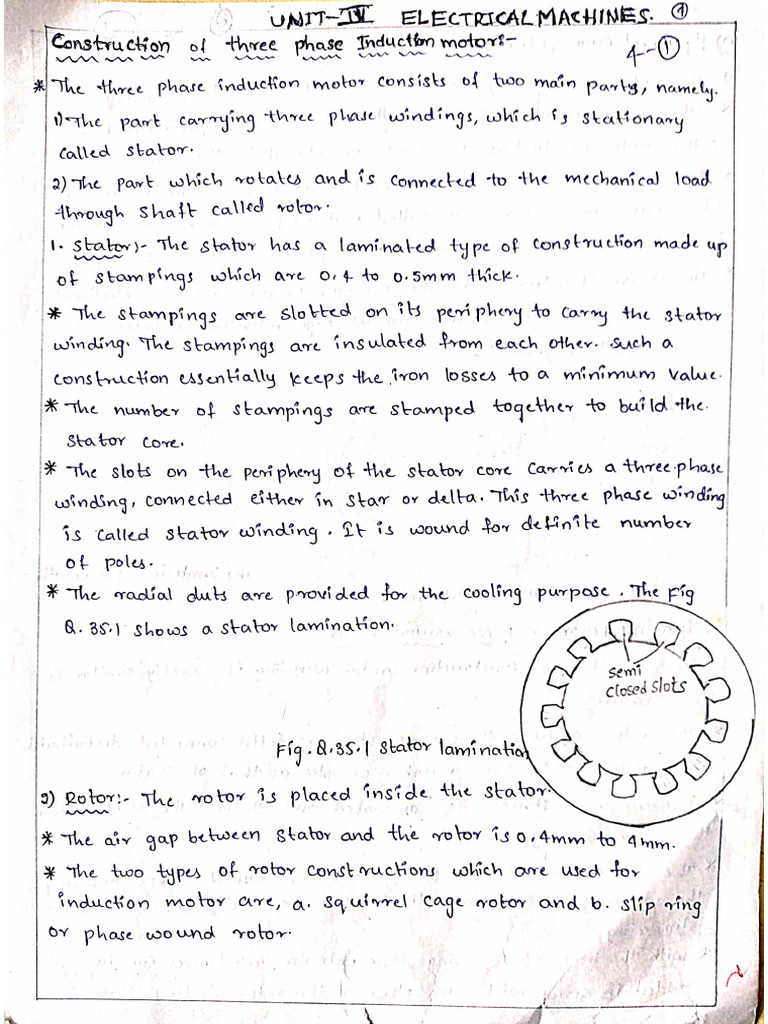 UNIT-IV ELECTRICAL MACHINES. 4
Construction of three phase Induction motors:-
4-1
* The three phase induction motor consists of two main parts, namely.
1) The part carrying three phase windings, which is stationary
called stator.
2) The part which rotates and is connected to the mechanical load
through shaft called rotor.
1. Stator:- The stator has a laminated type of construction made up
of stampings which are 0.4 to 0.5mm thick.
* The stampings are slotted on its periphery to carry the stator
winding. The stampings are insulated from each other. Such a
construction essentially keeps the iron losses to a minimum value.
* The number of stampings are stamped together to build the
stator core.
* The slots on the periphery of the stator core carries a three-phase
winding, connected either in star or delta. This three phase winding
is called stator winding. It is wound for definite number
of poles.
* The radial duts are provided for the cooling purpose. The Fig
Q.35.1 shows a stator lamination.
Semi
closed slots
Fig. Q.35.1 Stator lamination
2) Rotor:- The rotor is placed inside the stator.
* The air gap between stator and the rotor is 0.4mm to 4mm.
* The two types of rotor constructions which are used for
induction motor are, a. squirrel cage rotor and b. slip ring
or phase wound rotor.